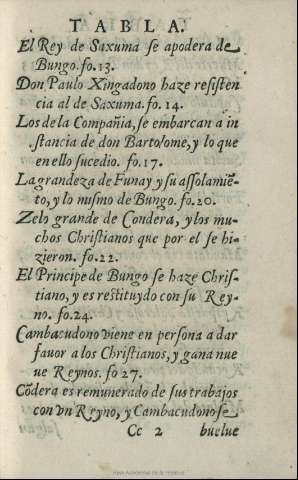 TABLA.
El Rey de Saxuma se apodera de
Bungo. fo. 13.
Don Paulo Xingadono haze resisten
cia al de Saxuma. fo. 14.
Los de la Compañia, se embarcan a in
stancia de don Bartolome, y lo que
en ello sucedio. fo. 17.
La grandeza de Funay y su assolamiẽ
to, y lo mismo de Bungo. fo. 20.
Zelo grande de Condera, y los mu
chos Christianos que por el se hi-
zieron. fo. 22.
El Principe de Bungo se haze Chris-
tiano, y es restituydo con su Rey-
no. fo. 24.
Cambacudono viene en persona a dar
fauor a los Christianos, y gana nue
ue Reynos. fo 27.
Cõdera es remunerado de sus trabajos
con vn Reyno, y Cambacudono se
Cc 2 buelue